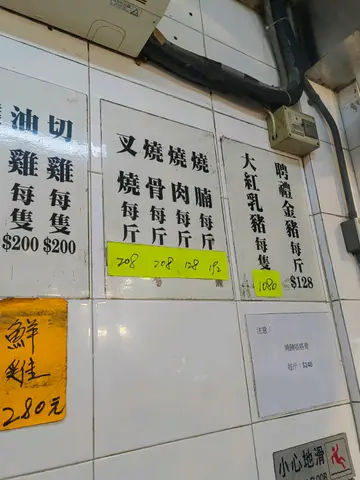 切雞每隻 $200
油雞每隻 $200
鮮雞
280元
燒腩每斤 192
燒肉每斤 128
燒骨每斤 208
叉燒每斤 208
聘禮金豬每斤 $128
大紅乳豬每隻 1080
注意：
每斤：$240
小心地滑